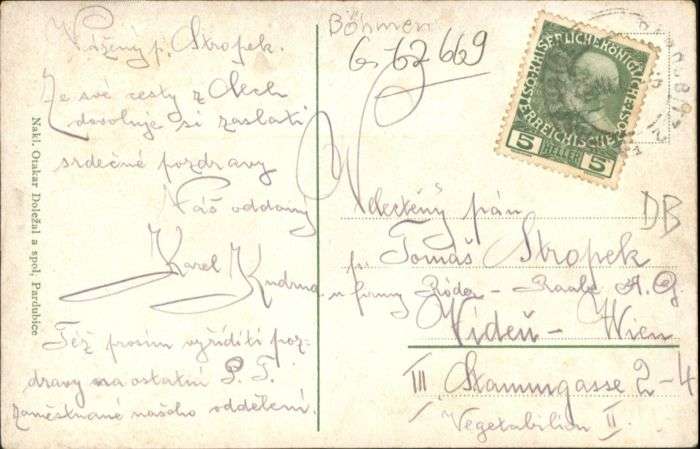 Vážený p. Stropek.
Ze své cesty z Čech
dovoluje si zaslati
srdečné pozdravy
Váš oddaný
Karel Kudrna
Též prosím vyříditi poz-
dravy na ostatní P. T.
zaměstnané našeho oddělení.
Nakl. Otakar Doležal a spol, Pardubice
Böhmen
6-62669
5 HELLER 5
DB
Velectěný pán
p. Tomáš Stropek
u firmy Röder - Raabe A. G.
Vídeň - Wien
III Stammgasse 2-4
Vegetabilien II.